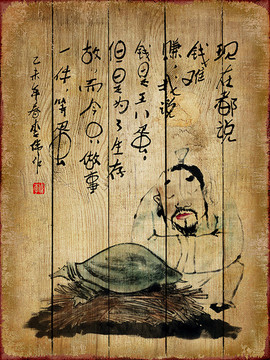 现在都说
钱难
赚我说
钱是王八蛋
但是为了生存
故而今做事
一件等蛋出
乙未年春作